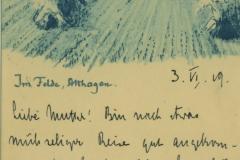 Im Felde, Althagen.
3. VI. 19.
Liebe Mutter! Bin nach etwas
mühseliger Reise gut angekom-